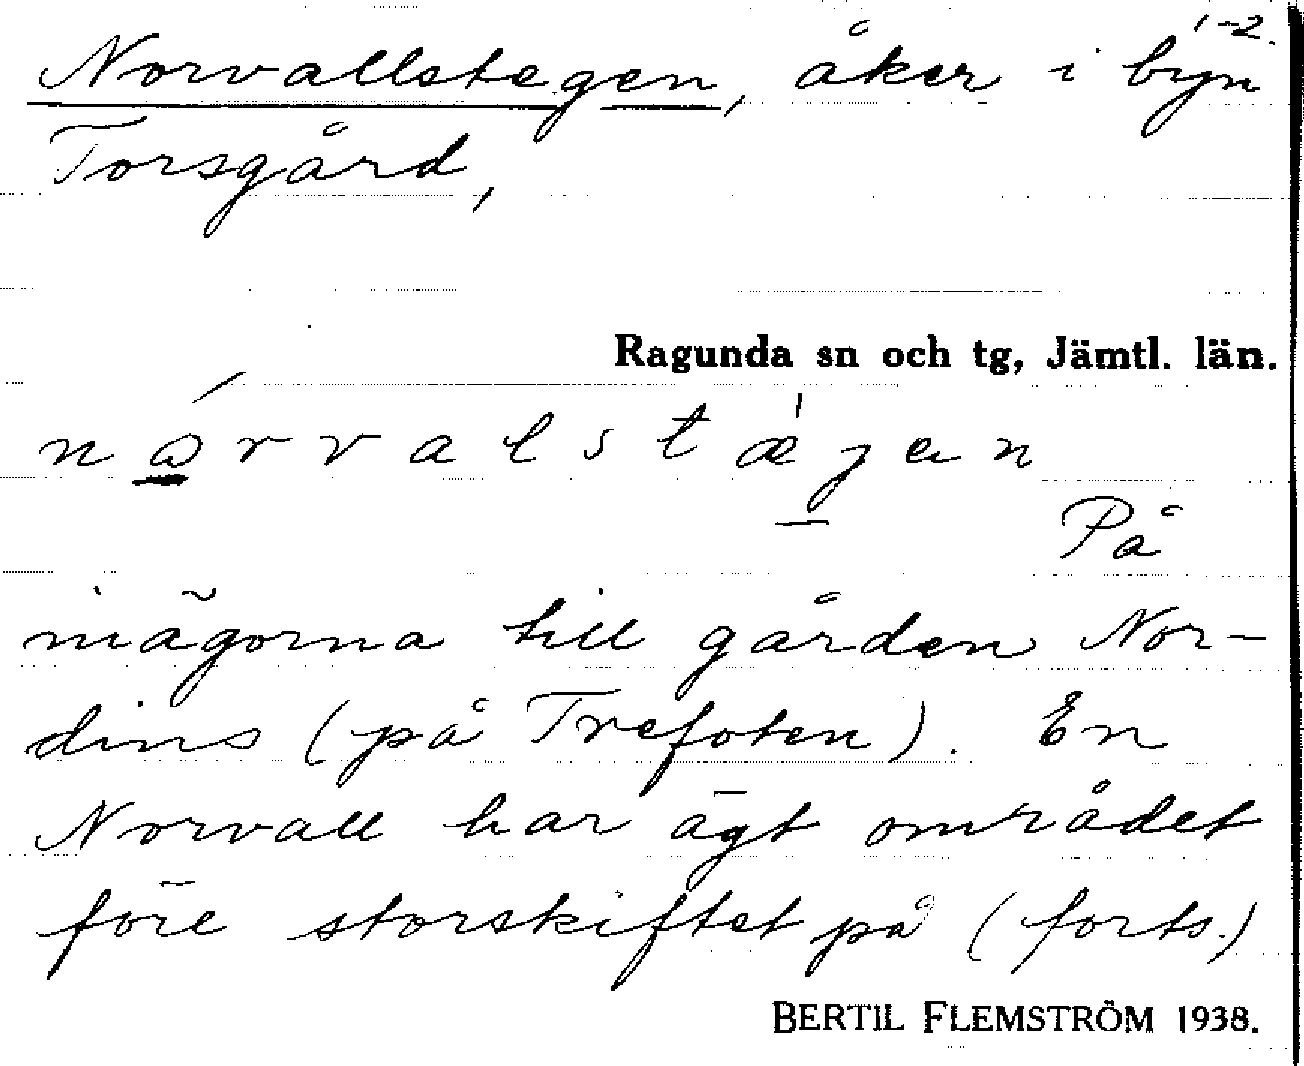 1-2.
Norvallstegen, åker i byn
Torsgård,
Ragunda sn och tg, Jämtl. län.
På
inägorna till gården Nor-
dins (på Trefoten). En
Norvall har ägt området
före storskiftet på (forts.)
BERTIL FLEMSTRÖM 1938.